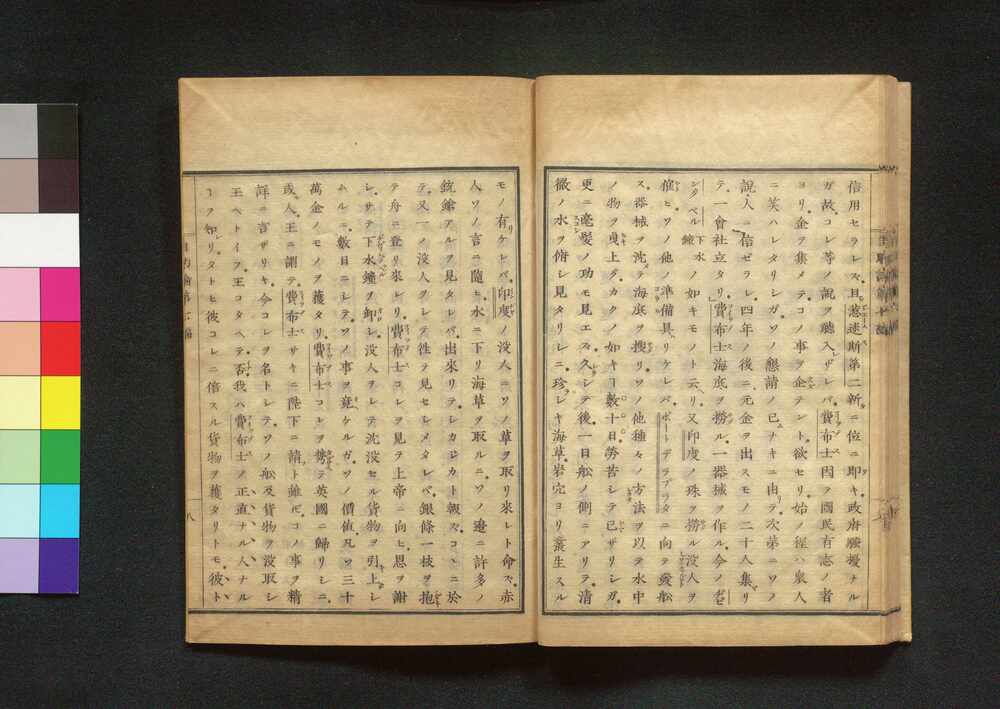 信用セラレズ、且惹迷斯第二新ニ位ニ即キ、政府騒擾ナル
ガ故、コレ等ノ説ヲ聴入レザレバ、費布士因ヲ國民有志ノ者
ヨリ金ヲ集メテ、コノ事ヲ企テント欲セリ、始ノ程ハ衆人
ニ笑ハレタリシガ、ソノ懇請ノ已ムナキニ由テ、次第ニソノ
説、人ニ信ゼラレ、四年ノ後ニ元金ヲ出スモノ二十人集リ
テ、一會社立タリ、費布士海底ヲ撈ル、一器械ヲ作ル、今ノ
ベル 下水鐘 ノ如キモノト云リ、又印度ノ珠ヲ撈ル没人ヲ
催ヒ、ソノ他ノ準備具リケレバ、ポートデラプラタニ向テ發船
ス、器械ヲ沈テ海底ヲ捜リ、ソノ他種々ノ方法ヲ以テ水中
ノ物ヲ曳上グ、カクノ如キヿ數十日、勞苦シテ已ザリシガ、
更ニ毫髪ノ功モ見エズ、久シテ後、一日船ノ側ニアリテ、清
徹ノ水ヲ俯シ見タリシニ、珍シキ海草、岩穴ヨリ叢生スル
モノ有ケレバ、印度ノ没人ニソノ草ヲ取リ來レト命ズ、赤
人ソノ言ニ隨ヒ、水ニ下リ海草ヲ取ルニ、ソノ邊ニ許多ノ
銃鎗アルヲ見タレバ、出來リテシカジカト報ズ、コヽニ於
テ又一ノ没人ヲシテ徃テ見セシメタレバ、銀條一枝ヲ抱
テ舟ニ登リ來レリ、費布士コレヲ見テ上帝ニ向ヒ恩ヲ謝
シ、サテ下水鐘ヲ卸シ、没人ヲシテ沈没セル貨物ヲ引上シ
ムルニ、數日ニシテソノ事ヲ竟ケルガ、ソノ價値凡ソ三十
萬金ノモノヲ獲タリ、費布士コレヲ携テ英國ニ歸リシニ、
或人、王ニ謂テ、費布士サキニ陛下ニ請ト雖ドモ、コノ事ヲ精
詳ニ言ザリキ、今コレヲ名トシテ、ソノ舩及貨物ヲ没取シ
玉ヘトイフ、王コタヘテ否、我ハ費布士ノ正直ナル人ナル
ヿヲ知リ、タトヒ彼コレニ倍スル貨物ヲ獲タリトモ、彼ト
八